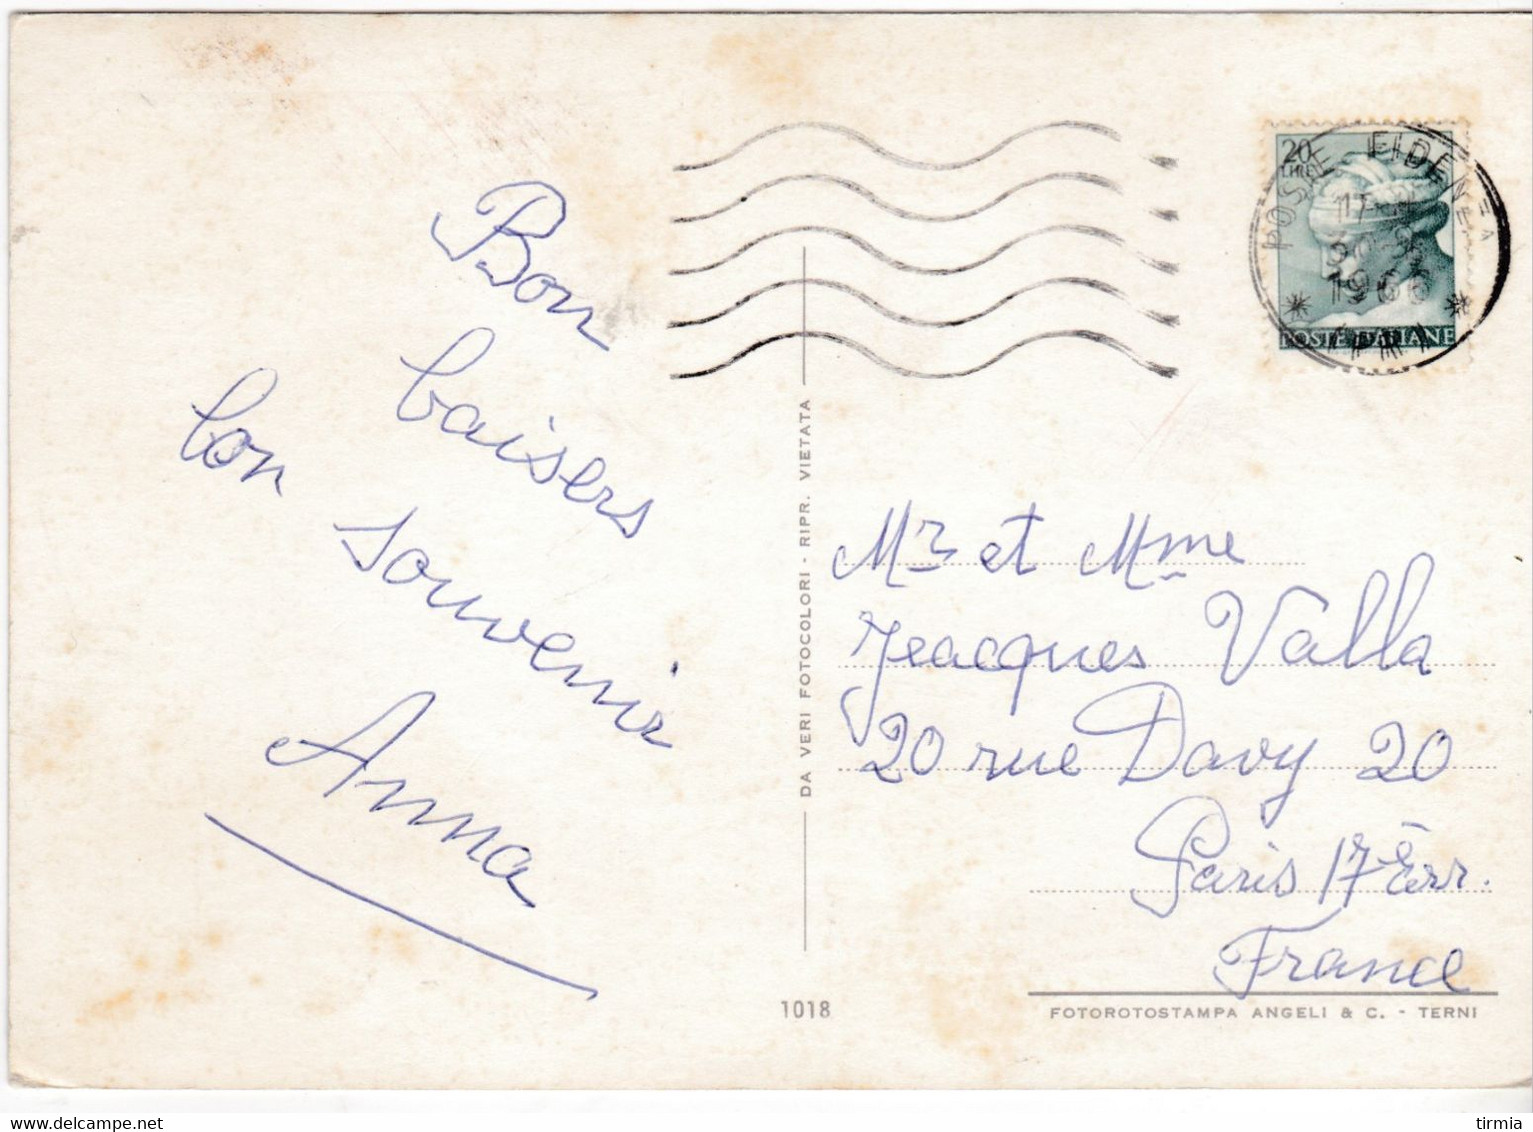 Bon
baisers
bon
souvenir
Anna
DA VERI FOTOCOLORI - RIPR. VIETATA
1018
20
LIRE
POSTE ITALIANE
POSTE FIDENE
1966
Mr et Mme
Jeacques Valla
20 rue Davy 20
Paris 17 Err.
France
FOTOROTOSTAMPA ANGELI & C. - TERNI
www.delcampe.net
tirmia